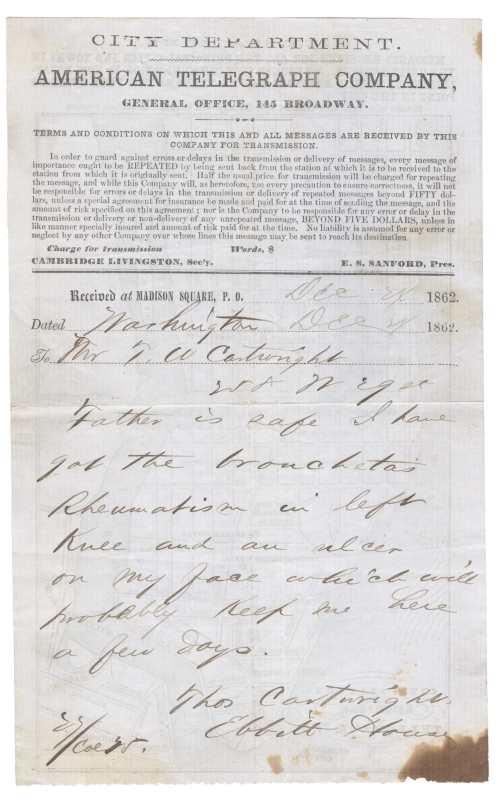 CITY DEPARTMENT.
AMERICAN TELEGRAPH COMPANY,
GENERAL OFFICE, 145 BROADWAY.
TERMS AND CONDITIONS ON WHICH THIS AND ALL MESSAGES ARE RECEIVED BY THIS
COMPANY FOR TRANSMISSION.
In order to guard against errors or delays in the transmission or delivery of messages, every message of
importance ought to be REPEATED by being sent back from the station at which it is to be received to the
station from which it is originally sent. Half the usual price for transmission will be charged for repeating
the message, and while this Company will, as heretofore, use every precaution to ensure correctness, it will not
be responsible for errors or delays in the transmission or delivery of repeated messages beyond FIFTY dol-
lars, unless a special agreement for insurance be made and paid for at the time of sending the message, and the
amount of risk specified on this agreement; nor is the Company to be responsible for any error or delay in the
transmission or delivery or non-delivery of any unrepeated message, BEYOND FIVE DOLLARS, unless in
like manner specially insured and amount of risk paid for at the time. No liability is assumed for any error or
neglect by any other Company over whose lines this message may be sent to reach its destination.
Charge for transmission Words, $
CAMBRIDGE LIVINGSTON, Sec'y. E. S. SANFORD, Pres.
Received at MADISON SQUARE, P. O. Dec 4 1862.
Dated Washington Dec 4 1862.
To Mr T. W Cartwright
Father is safe I have
got the bronchetas
Rheumatism in left
Knee and an ulcer
on my face which will
probably Keep me here
a few days.
Thos Cartwright.
Ebbitt House